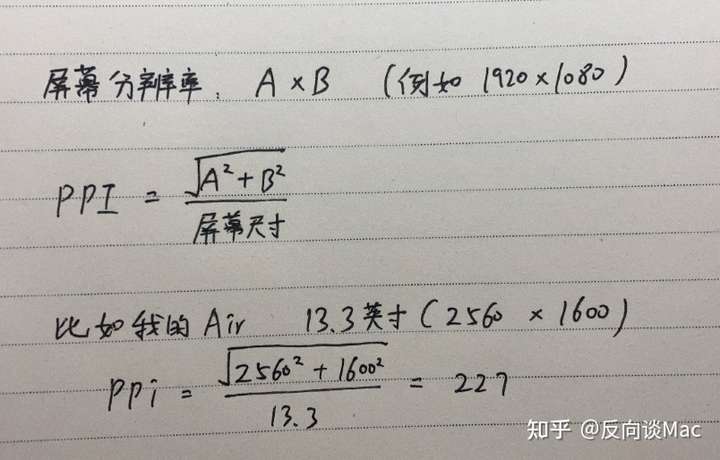 屏幕分辨率: A × B (例如 1920×1080)
PPI = √(A² + B²) / 屏幕尺寸
比如我的 Air 13.3英寸 (2560 × 1600)
PPi = √(2560² + 1600²) / 13.3 = 227
知乎 @反向谈Mac